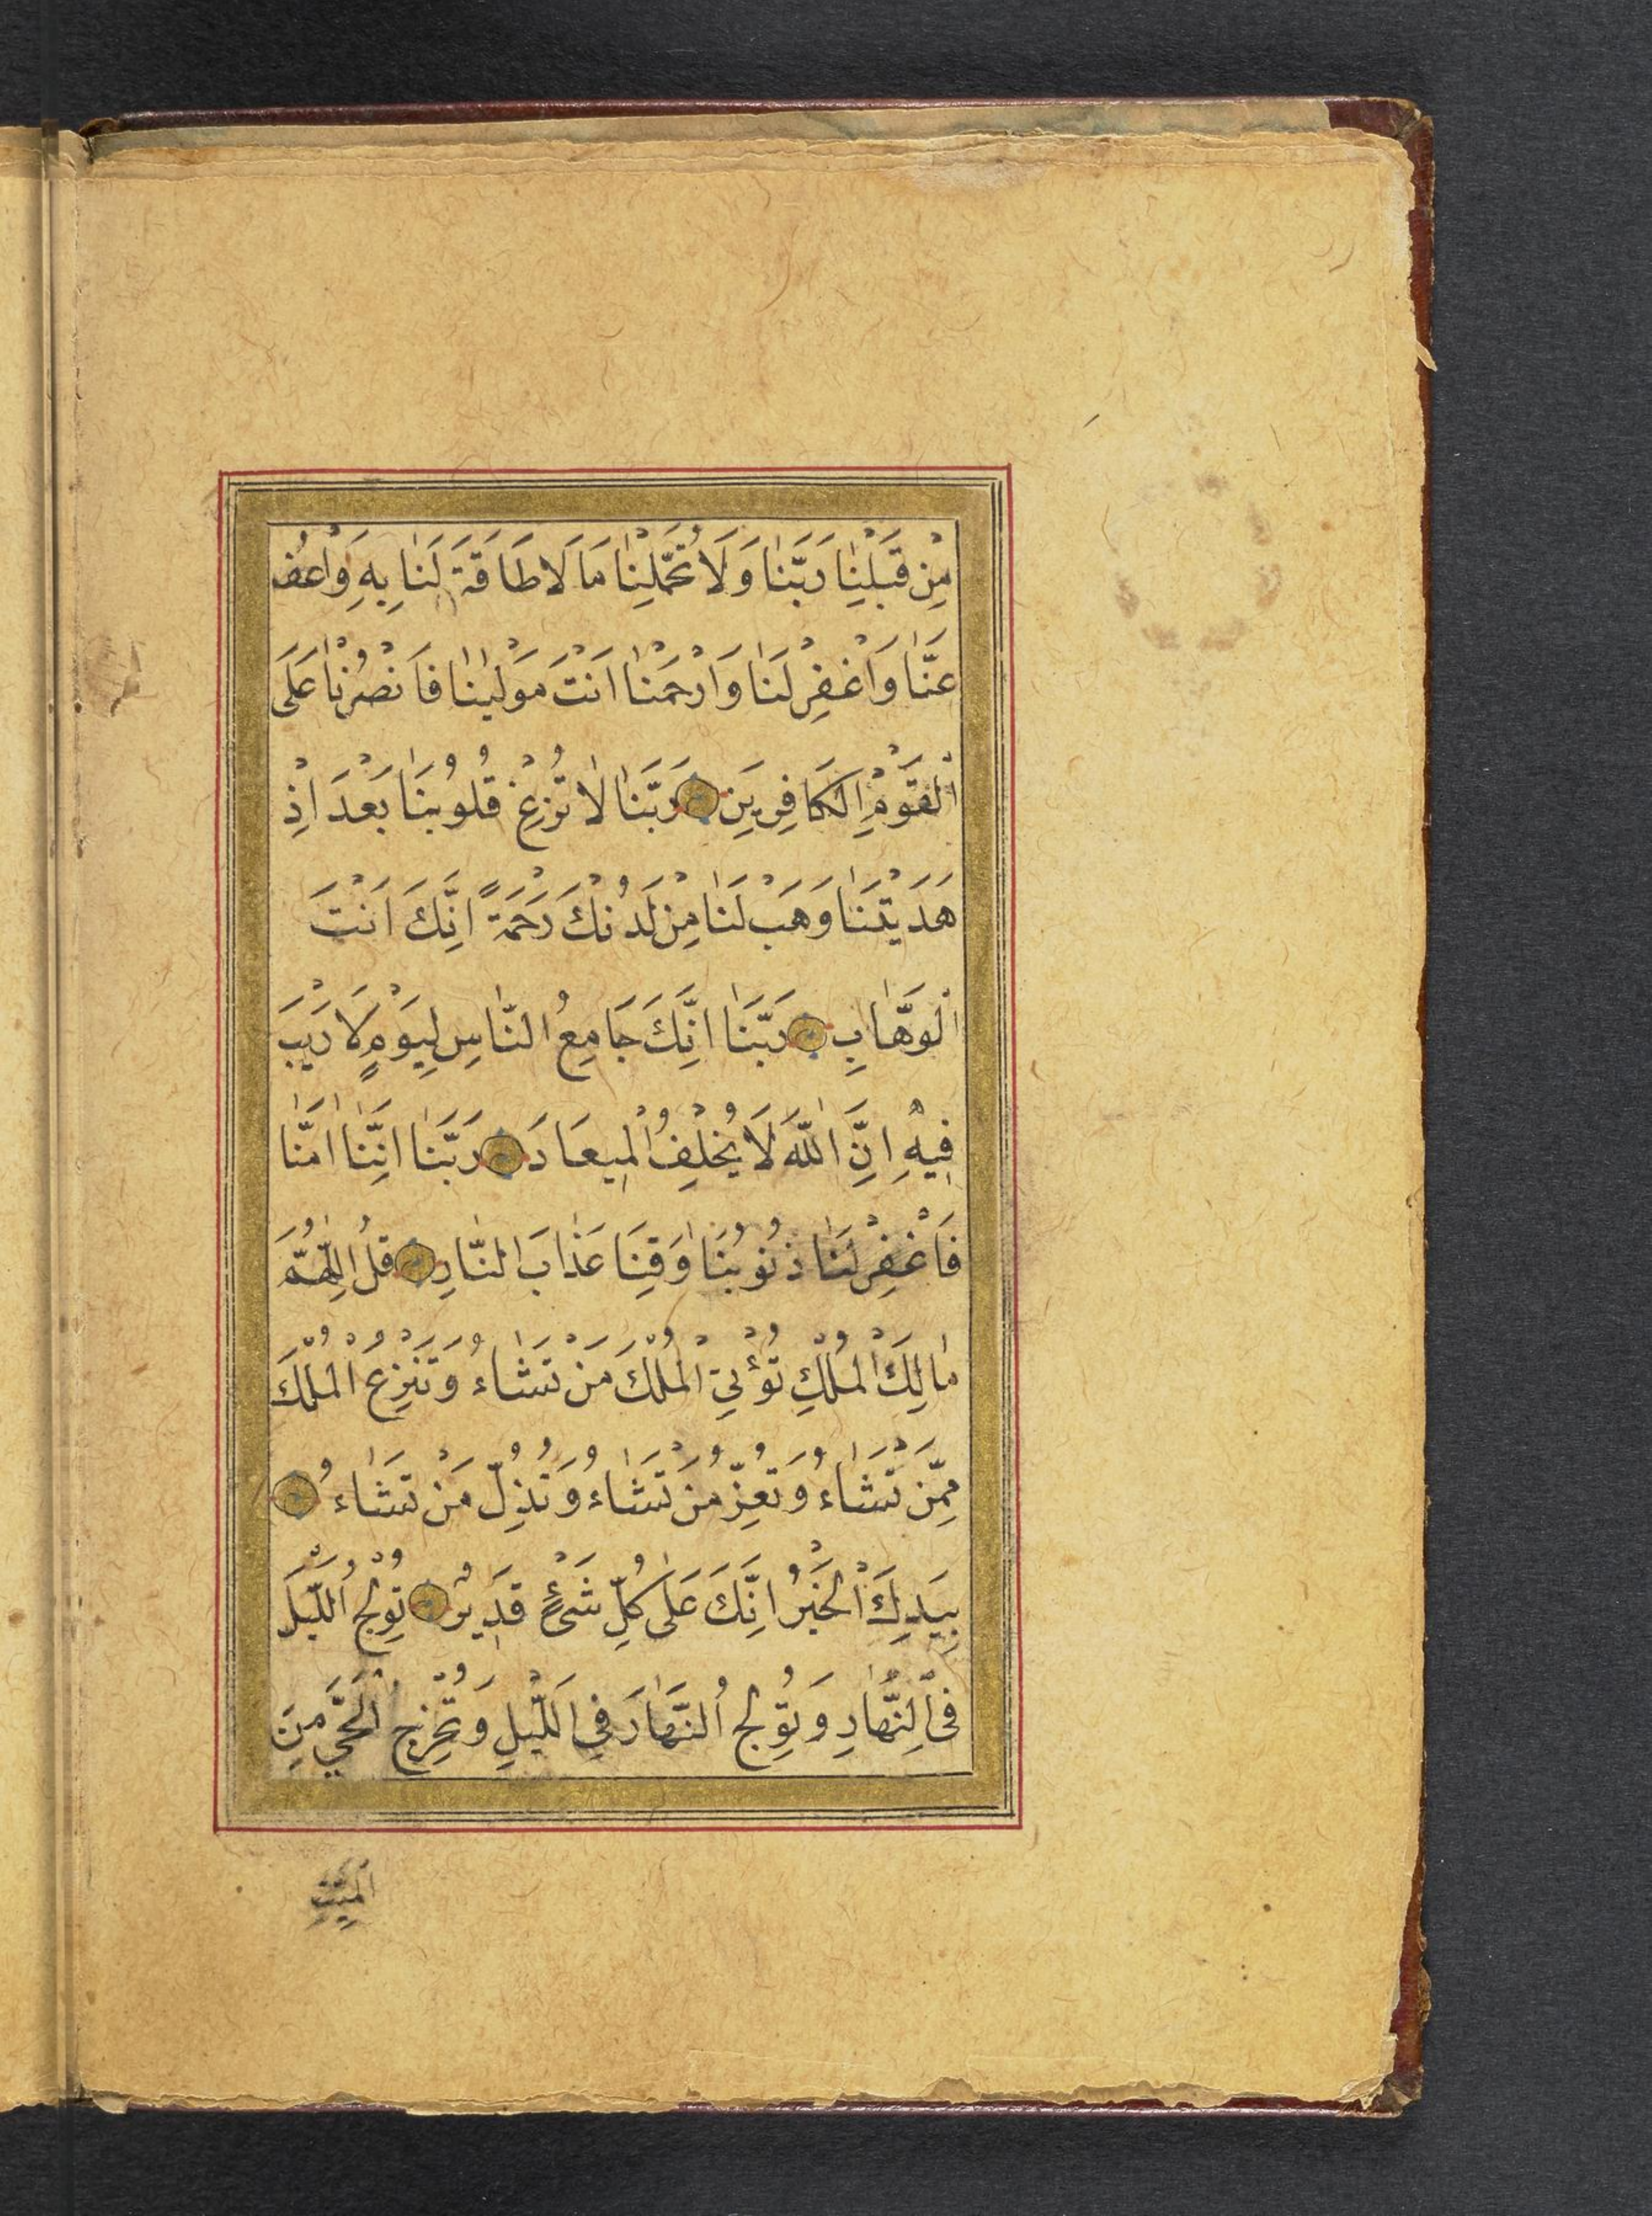 مِنْ قَبْلِنٰا رَبَّنٰا وَلَا تُحَمِّلْنٰا مَا لَا طَاقَةَ لَنٰا بِهِ وَاْعْفُ
عَنَّا وَاْغْفِرْ لَنٰا وَارْحَمْنٰا اَنْتَ مَوْلٰينٰا فَانْصُرْنٰا عَلَى
اْلقَوْمِ الْكَافِرِينَ رَبَّنٰا لٰا تُزِغْ قُلُوبَنٰا بَعْدَ اِذْ
هَدَيْتَنٰا وَهَبْ لَنٰا مِنْ لَدُنْكَ رَحْمَةً اِنَّكَ اَنْتَ
اْلوَهَّابِ رَبَّنٰا اِنَّكَ جَامِعُ النّٰاسِ لِيَوْمٍ لَا رَيْبَ
فِيهِ اِنَّ اللّٰهَ لَا يُخْلِفُ اْلمِيعَادَ رَبَّنٰا اِنَّنٰا اٰمَنّٰا
فَاْغْفِرْ لَنٰا ذُنُوبَنٰا وَقِنَا عَذٰابَ النّٰارِ قُلِ اللّٰهُمَّ
مٰالِكَ اْلمُلْكِ تُؤْتِي اْلمُلْكَ مَنْ تَشٰاءُ وَتَنْزِعُ اْلمُلْكَ
مِمَّنْ تَشٰاءُ وَتُعِزُّ مَنْ تَشٰاءُ وَتُذِلُّ مَنْ تَشٰاءُ
بِيَدِكَ اْلخَيْرُ اِنَّكَ عَلٰى كُلِّ شَيْءٍ قَدِيرٌ تُولِجُ اللَّيْلَ
فِى اْلنَّهٰارِ وَتُولِجُ اُلنَّهٰارَ فِي اللَّيْلِ وَتُخْرِجُ اْلحَيَّ مِنَ
اَلميّتِ